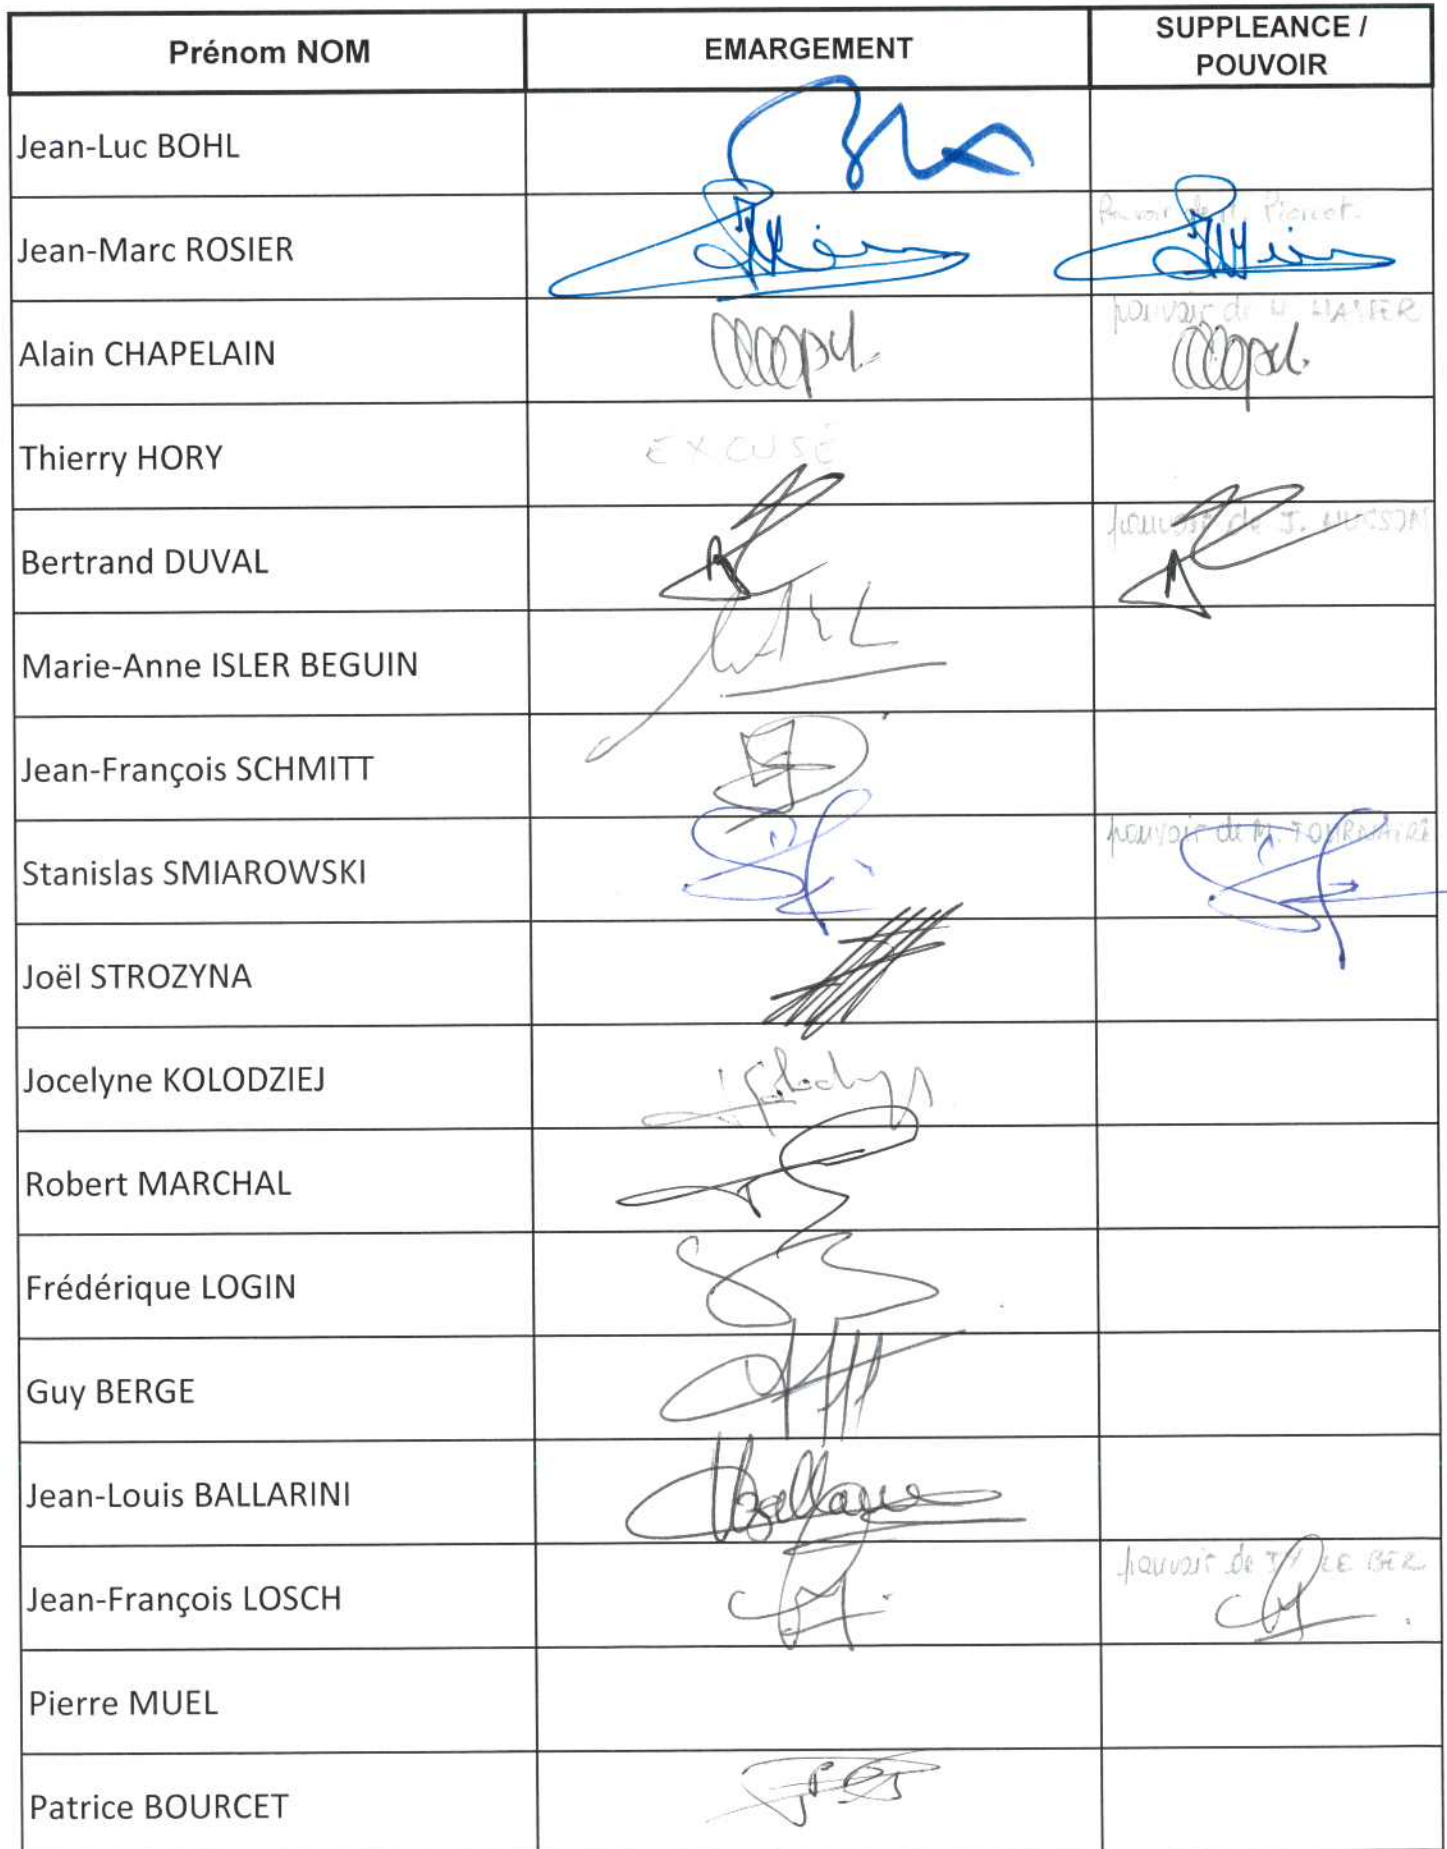 Prénom NOM
EMARGEMENT
SUPPLEANCE /
POUVOIR
Jean-Luc BOHL
Jean-Marc ROSIER
Pouvoir de M.
Alain CHAPELAIN
pouvoir de
Thierry HORY
EXCUSÉ
Bertrand DUVAL
pouvoir de J.
Marie-Anne ISLER BEGUIN
Jean-François SCHMITT
Stanislas SMIAROWSKI
pouvoir de M. TOURNAIRE
Joël STROZYNA
Jocelyne KOLODZIEJ
Robert MARCHAL
Frédérique LOGIN
Guy BERGE
Jean-Louis BALLARINI
Jean-François LOSCH
pouvoir de LE BER
Pierre MUEL
Patrice BOURCET